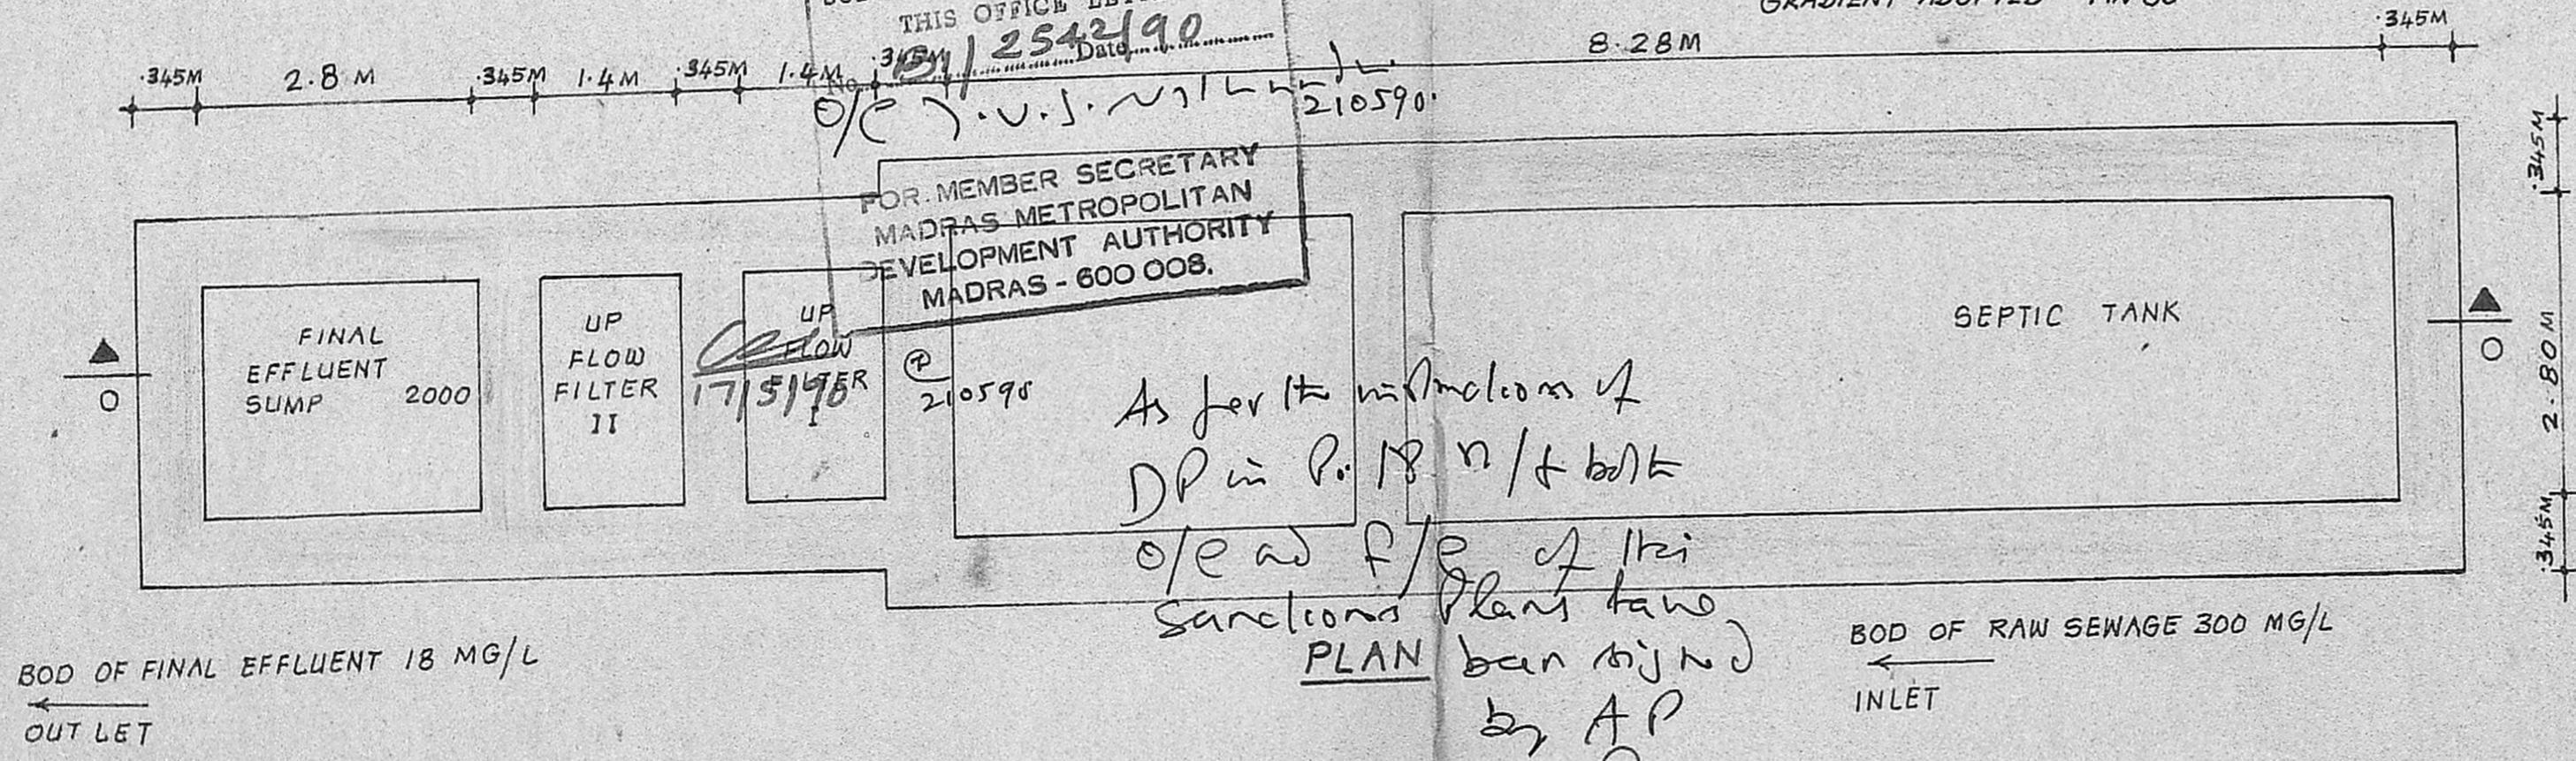 THIS OFFICE
No. B1/2542/90 Date
.345M 2.8 M .345M 1.4M .345M 1.4M .345M 8.28M .345M
O/C
210590.
FOR MEMBER SECRETARY
MADRAS METROPOLITAN
DEVELOPMENT AUTHORITY
MADRAS - 600 008.
.345M
2.80M
.345M
FINAL
EFFLUENT
SUMP 2000
UP
FLOW
FILTER
II
UP
FLOW
FILTER
I
17/5/90
210590
SEPTIC TANK
O
O
As per the instructions of
DP in P. 18 n/f both
O/C and F/C of this
Sanctions Plans have
been signed
by AP
PLAN
BOD OF FINAL EFFLUENT 18 MG/L
OUT LET
BOD OF RAW SEWAGE 300 MG/L
INLET